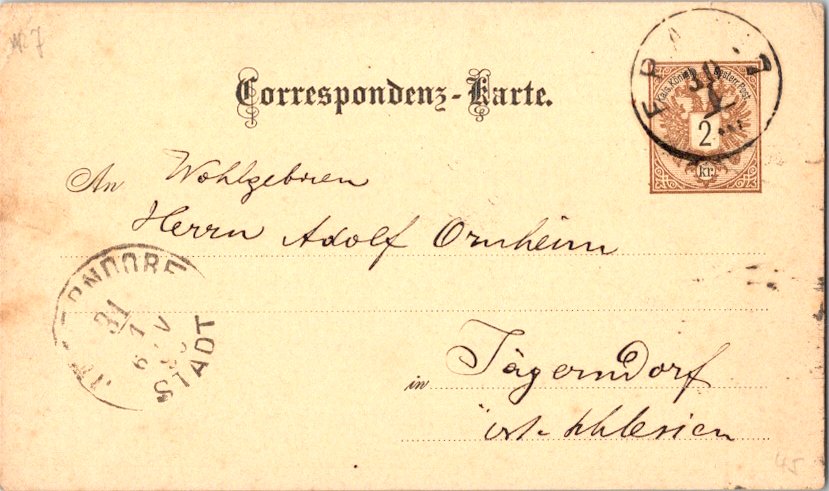 Nr. 7
Correspondenz-Karte.
Kais. Königl. Österr. Post
2
kr.
30
An Wohlgeboren
Herrn Adolf Ornheim
JÄGERNDORF
31
1
6
STADT
in Jägerndorf
öst. Schlesien
45